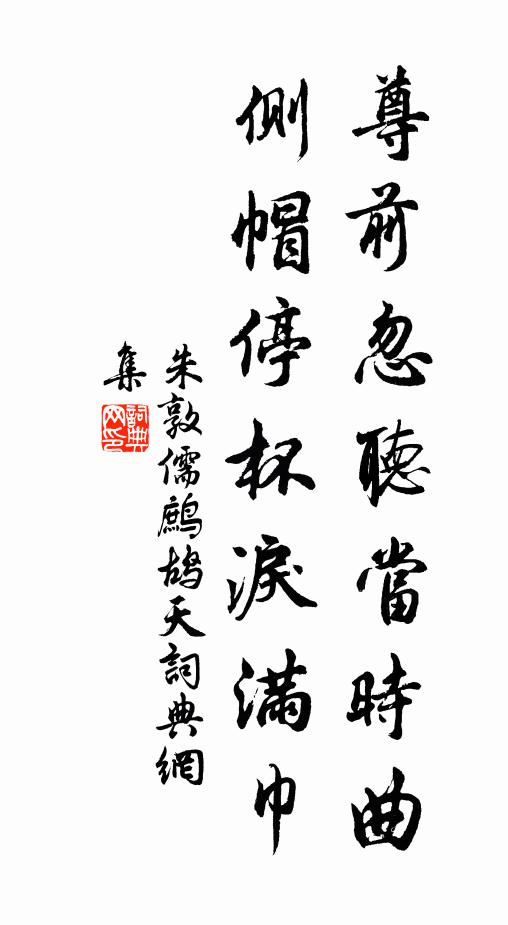 尊前忽聽當時曲
側帽停杯淚滿巾
朱敦儒鷓鴣天詞典網
集
詞典网印